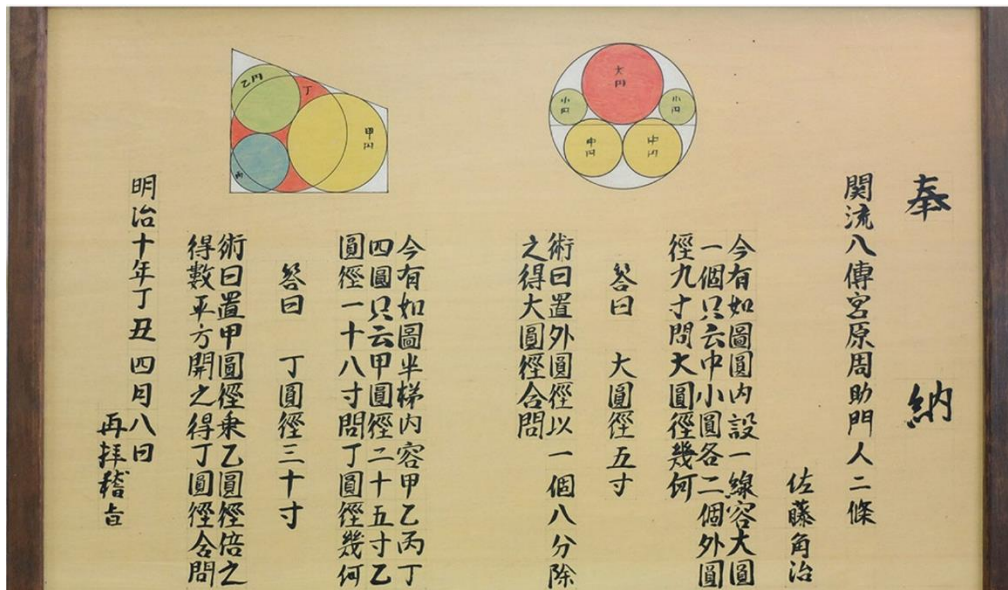 奉納
関流八傳宮原周助門人二條
佐藤角治
大円
小円
小円
中円
中円
今有如圖圓内設一線容大圓
一個只云中小圓各二個外圓
徑九寸問大圓徑幾何
答曰 大圓徑五寸
術曰置外圓徑以一個八分除
之得大圓徑合問
乙円
丁
甲円
丙
今有如圖半梯内容甲乙丙丁
四圓只云甲圓徑二十五寸乙
圓徑一十八寸問丁圓徑幾何
答曰 丁圓徑三十寸
術曰置甲圓徑乗乙圓徑倍之
得數平方開之得丁圓徑合問
明治十年丁丑四月八日
再拝稽首